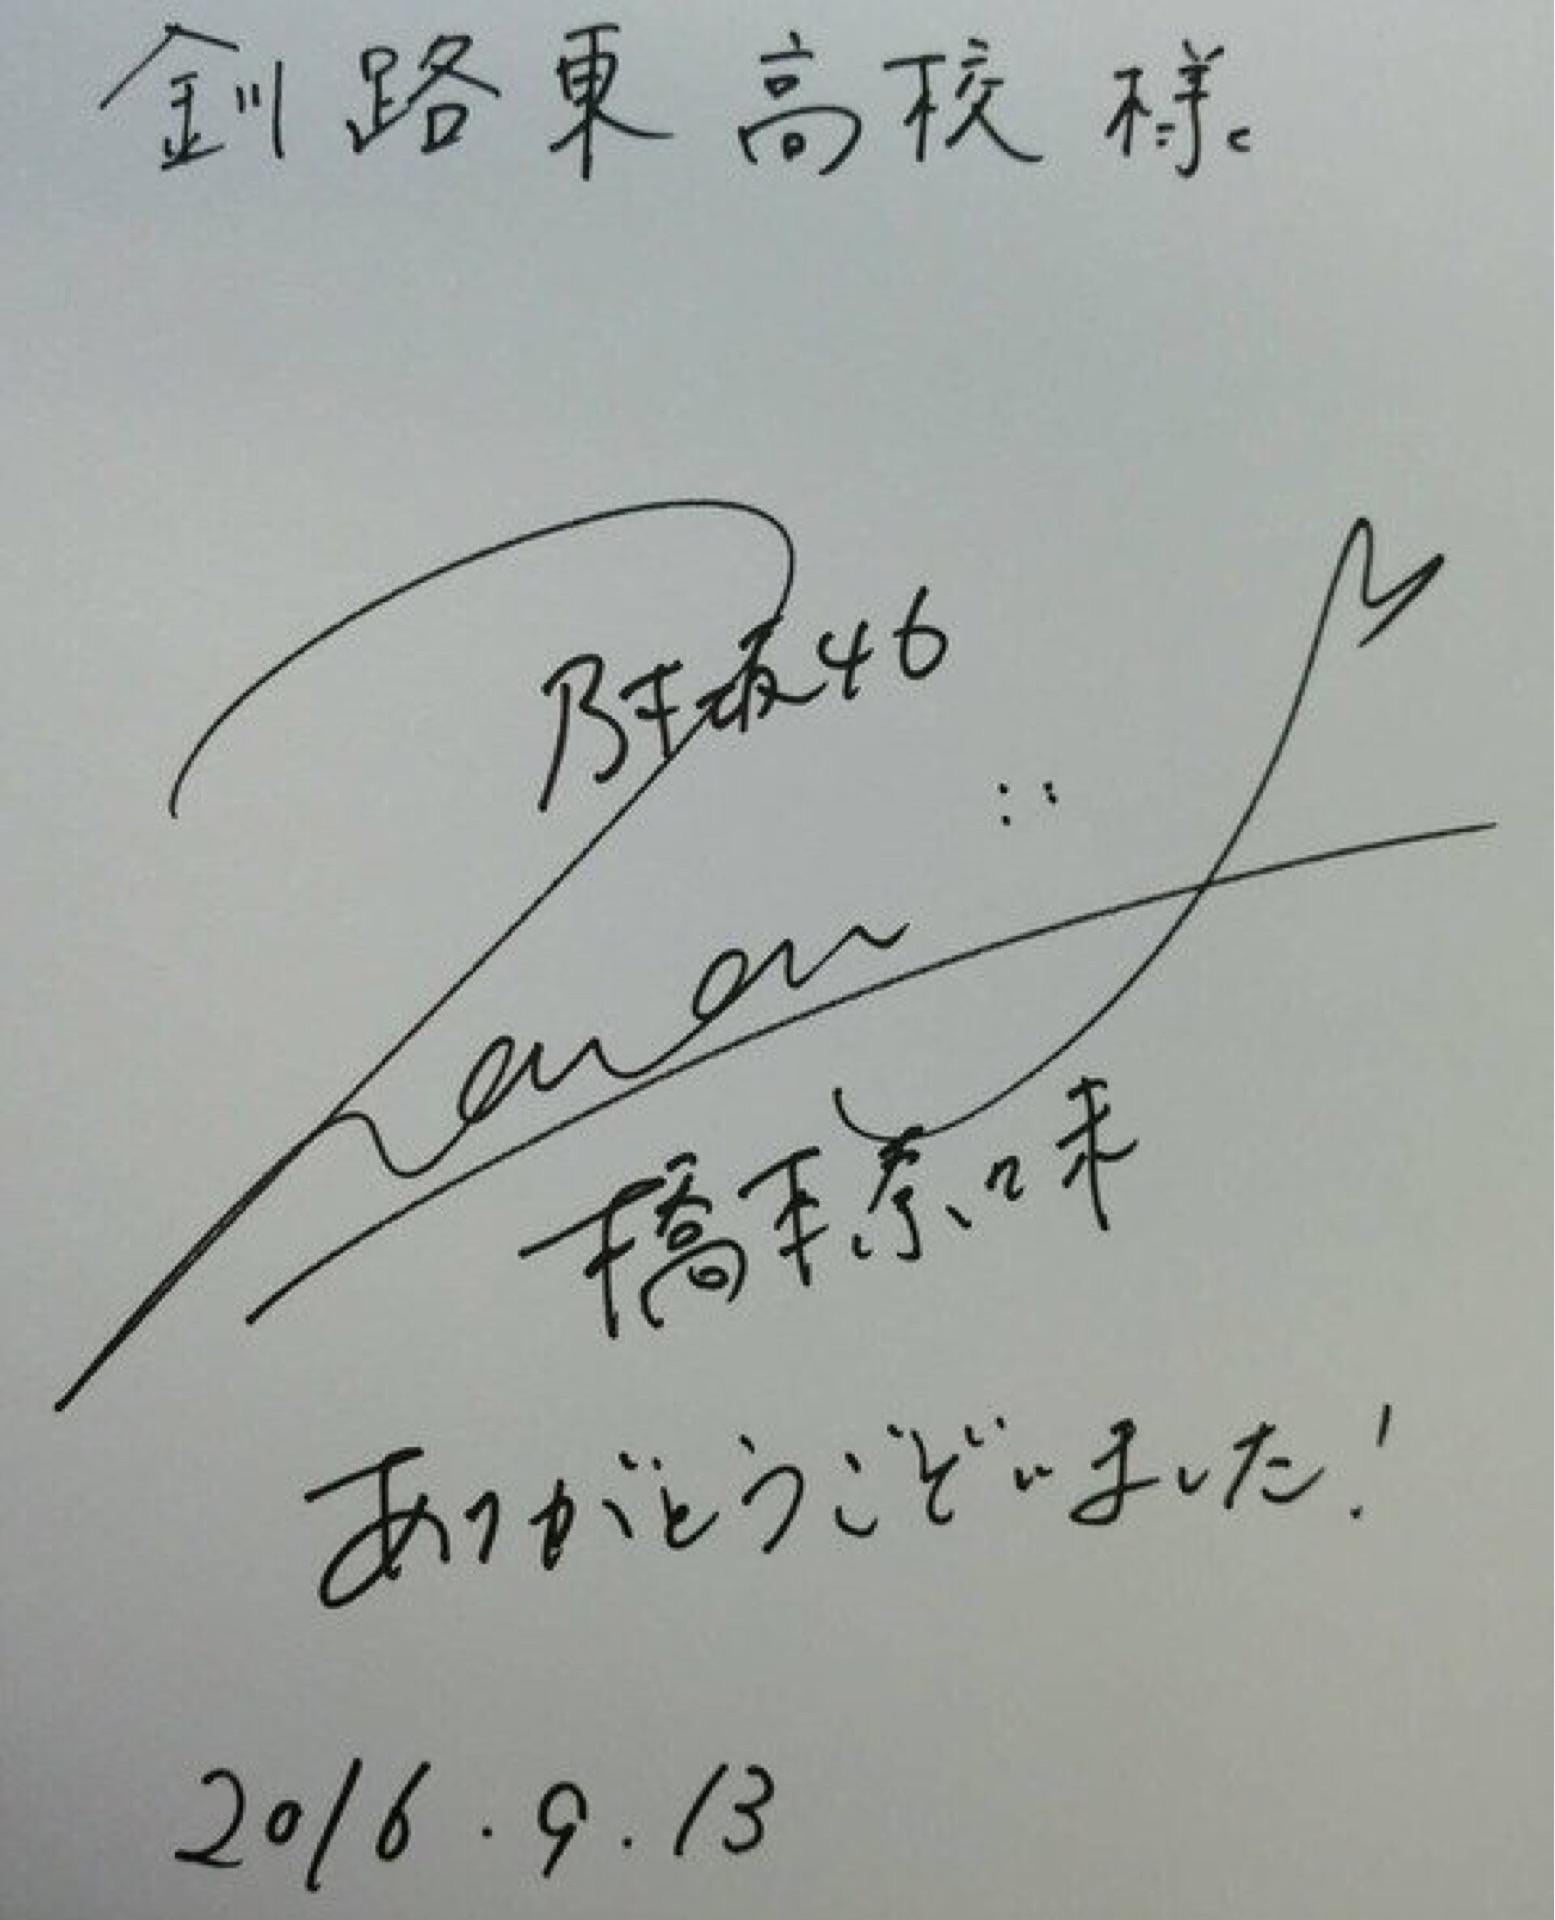 釧路東高校様。
乃木坂46
Nanami
橋本奈々未
ありがとうございました!
2016.9.13